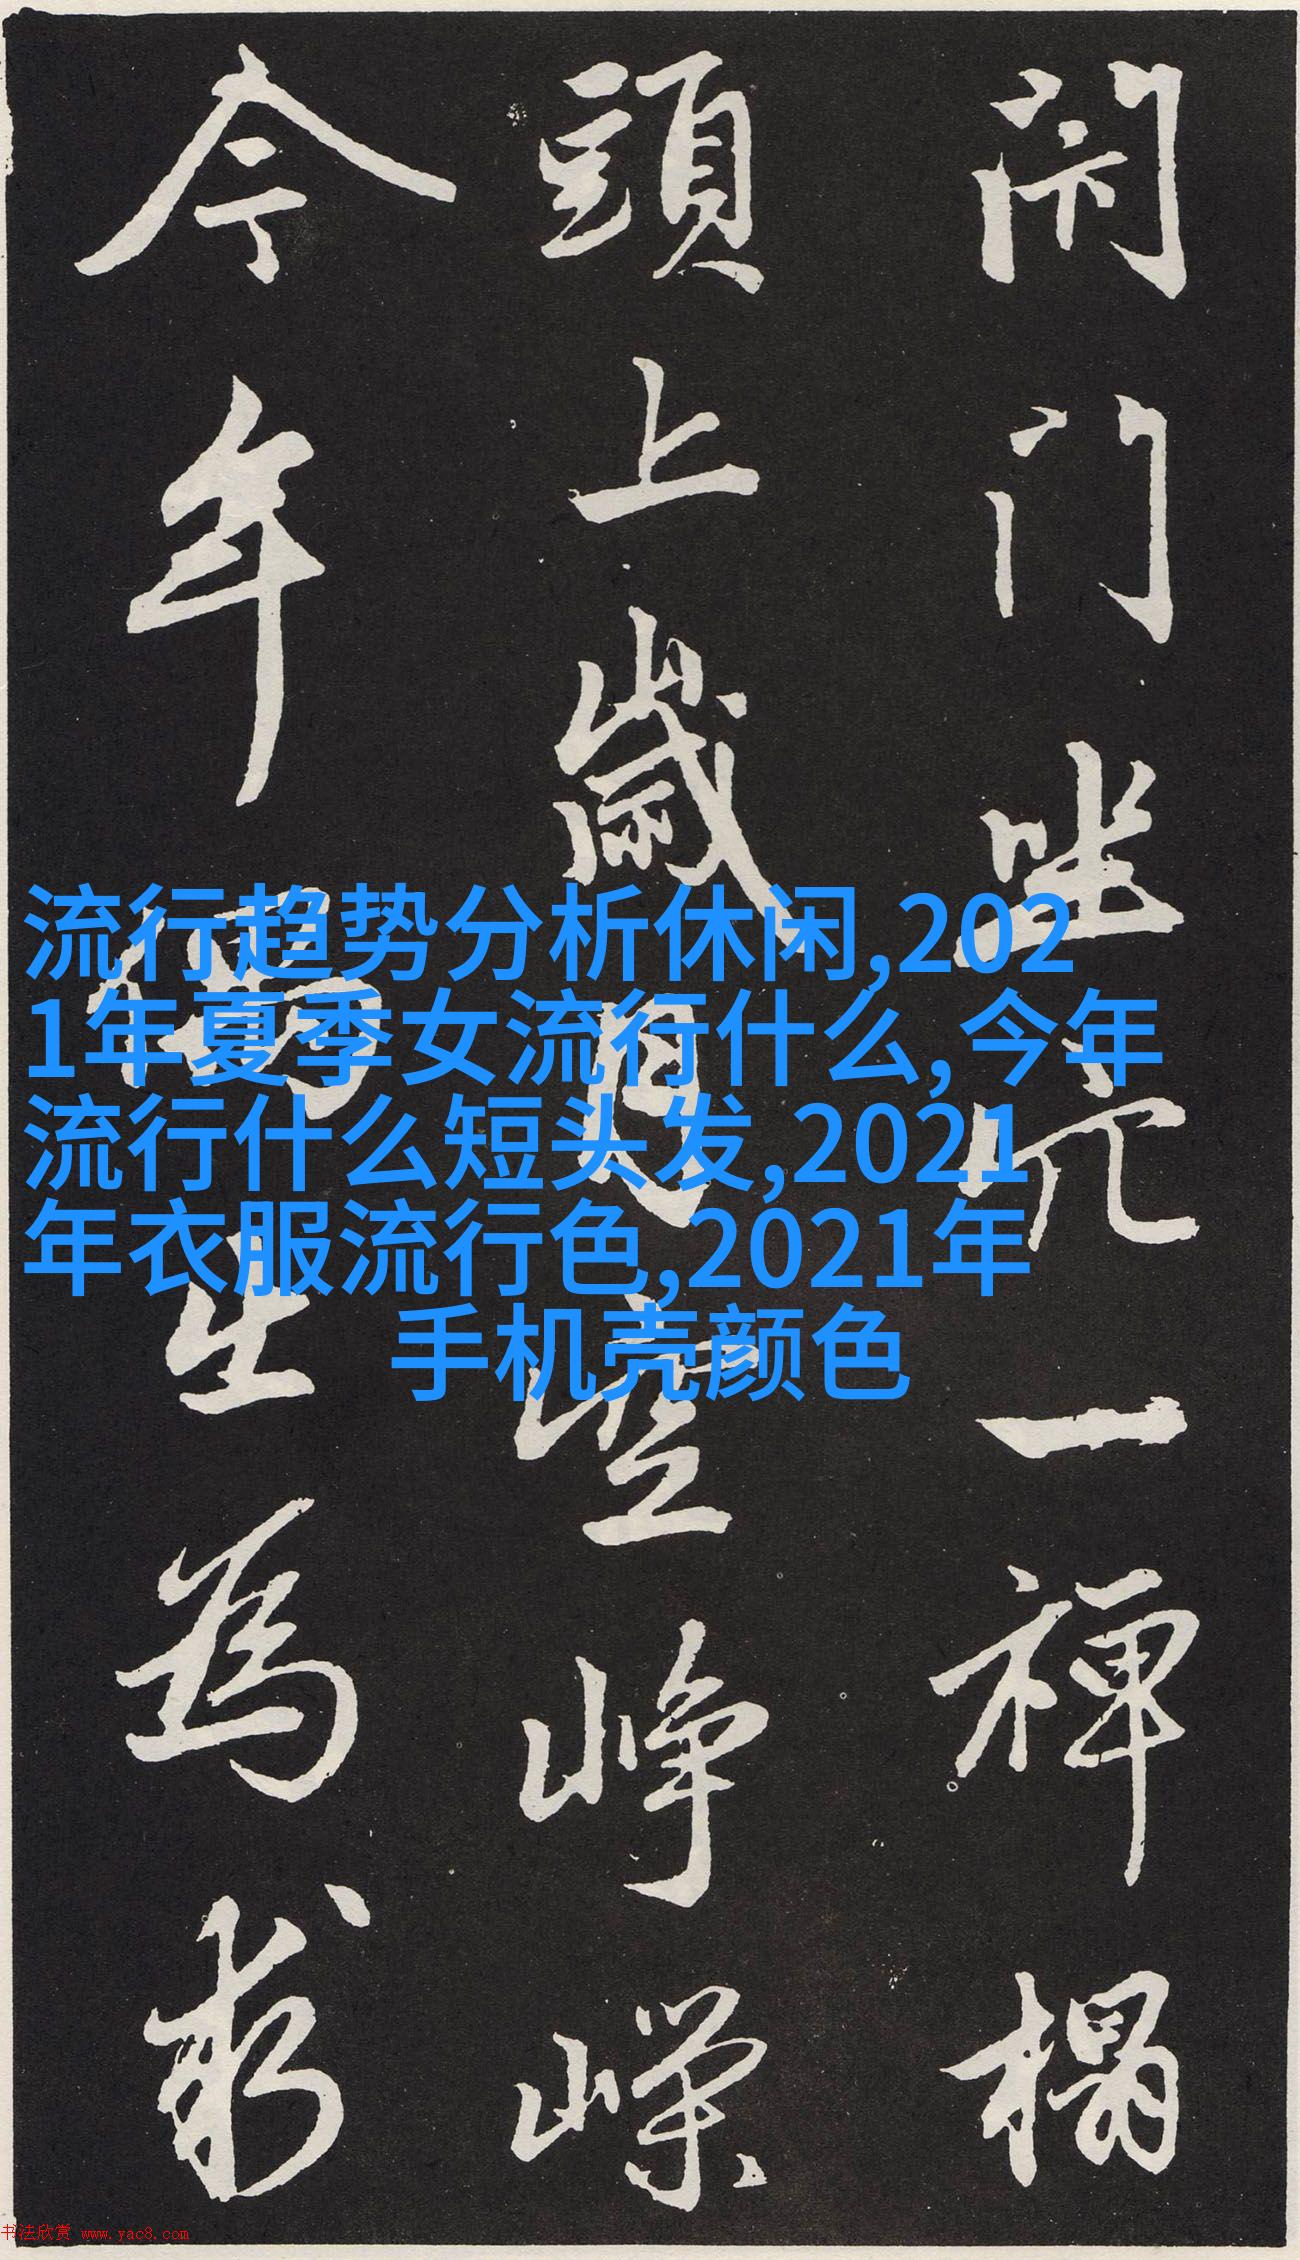 閇門坐穴一禪榻
頭上歲月空崢嶸
今年偶出為求
流行趋势分析休闲,202
1年夏季女流行什么, 今年
流行什么短头发,2021
年衣服流行色,2021年
手机壳颜色
书法欣赏 www.yac8.com